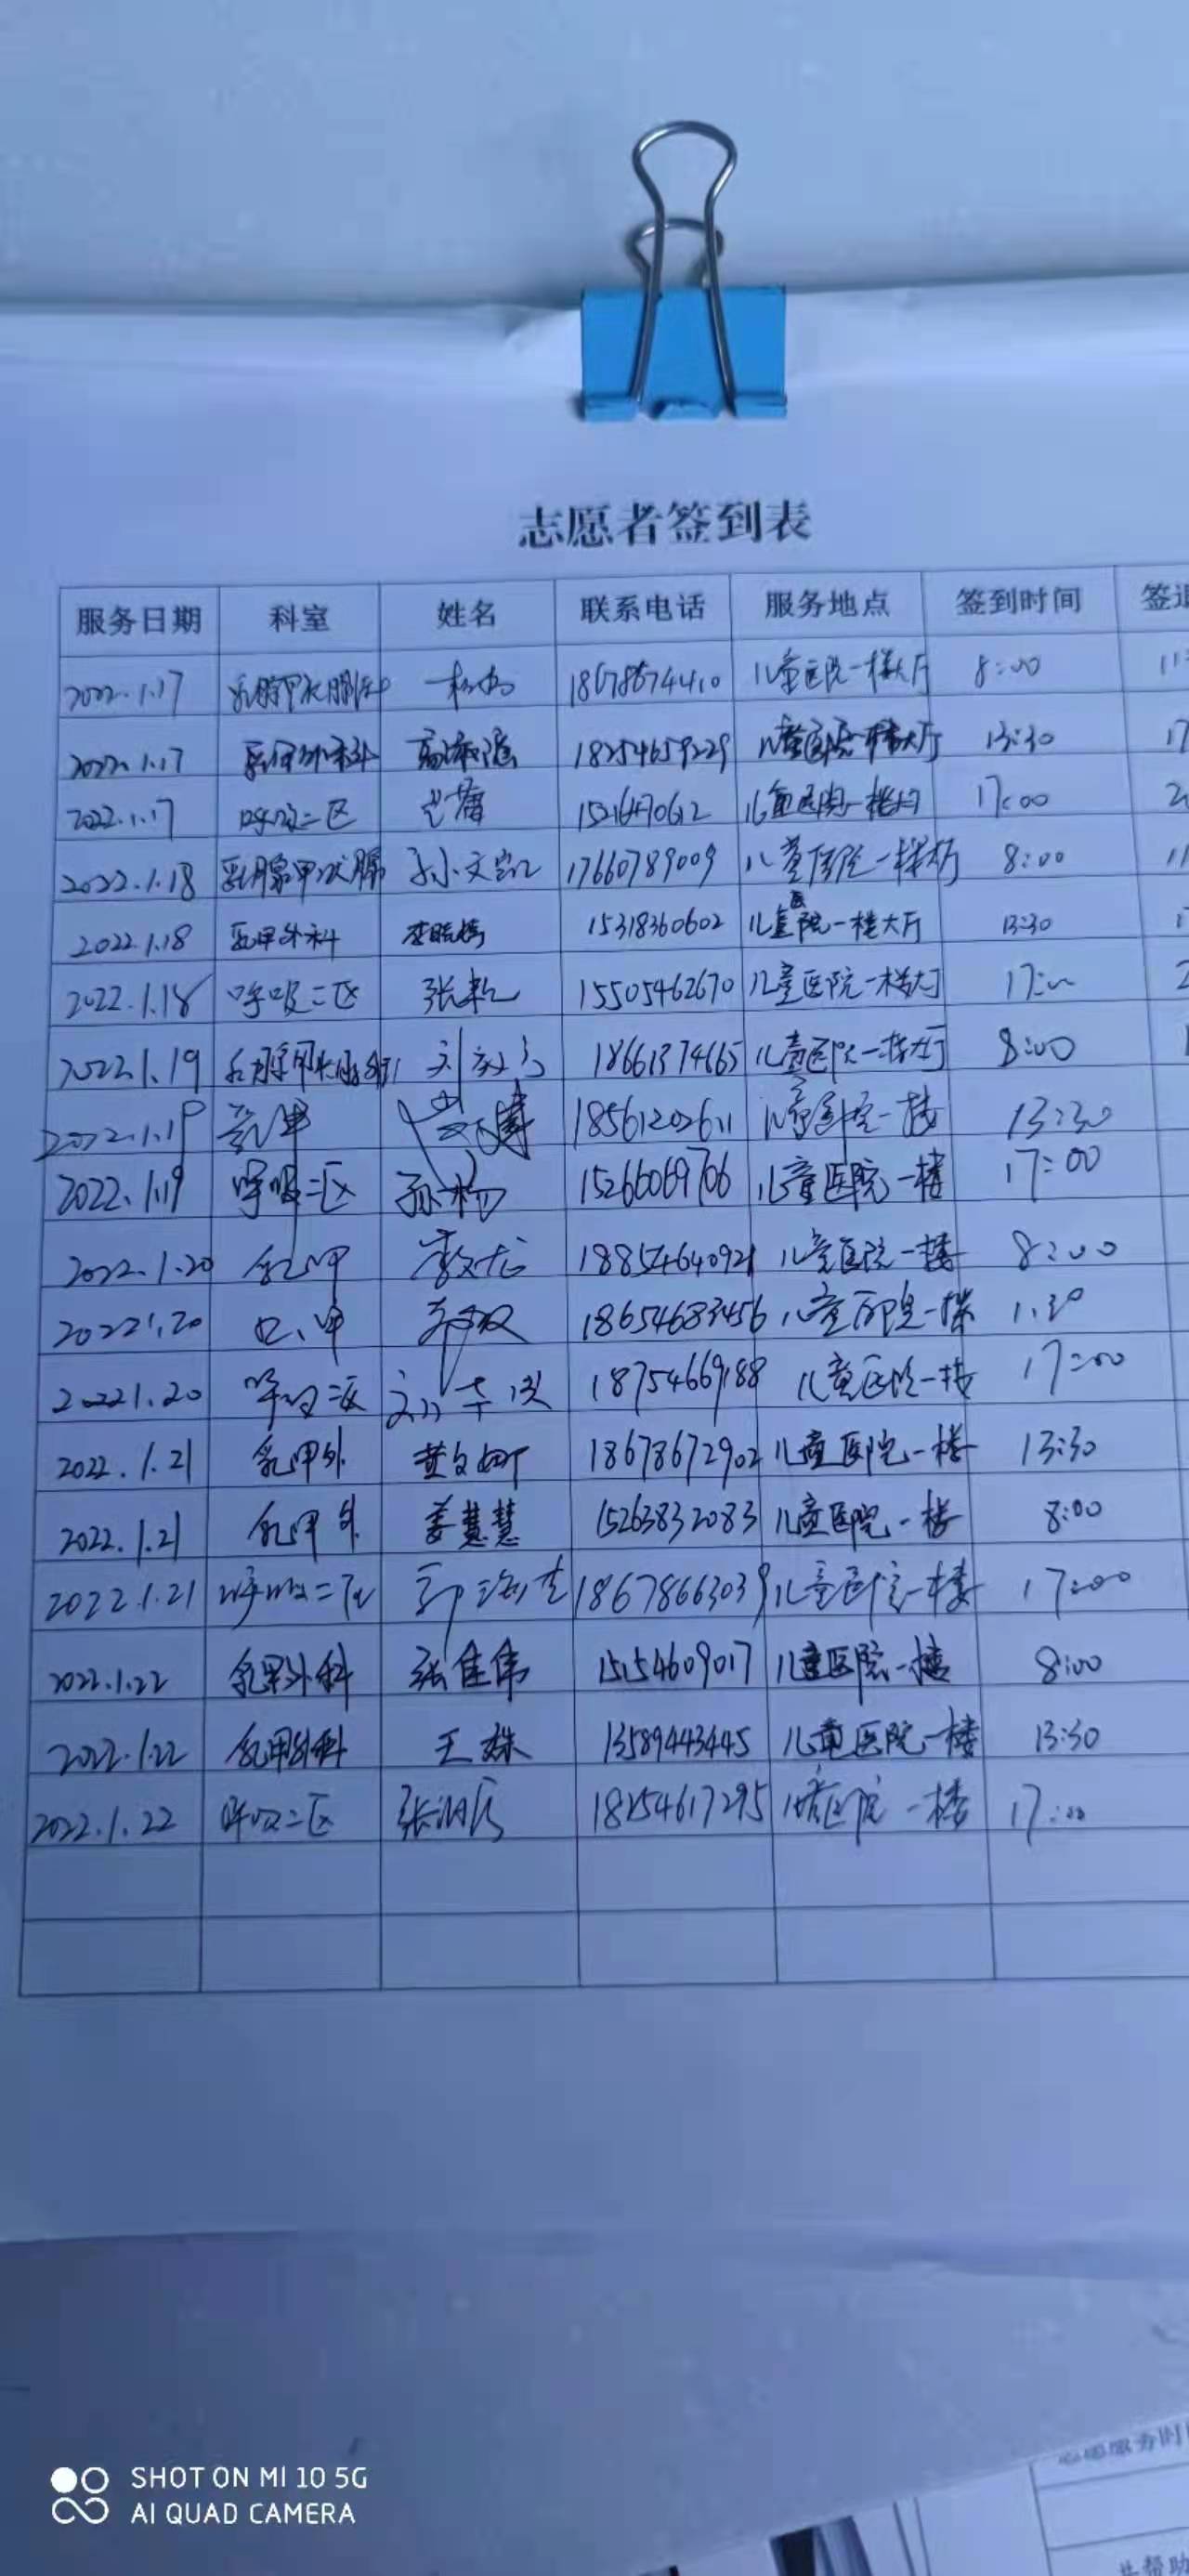 志愿者签到表
服务日期 科室 姓名 联系电话 服务地点 签到时间 签退
2022.1.17 18678674410 儿童医院一楼大厅 8:00 11:
2022.1.17 乳甲外科 18254659229 儿童医院一楼大厅 13:30 17
2022.1.17 呼吸二区 儿童医院一楼大厅 17:00 2
2022.1.18 乳腺甲状腺 17660789009 儿童医院一楼大厅 8:00 11
2022.1.18 乳甲外科 15318360602 儿童医院一楼大厅 13:30 1
2022.1.18 呼吸二区 张乾 15505462670 儿童医院一楼大厅 17:00 2
2022.1.19 18661374665 儿童医院一楼大厅 8:00 1
2022.1.19 乳甲 18561202611 儿童医院一楼 13:30
2022.1.19 呼吸二区 孙杨 15266069706 儿童医院一楼 17:00
2022.1.20 乳甲 李文龙 18854640921 儿童医院一楼 8:00
2022.1.20 乳甲 18654683456 儿童医院一楼 1:30
2022.1.20 呼吸二区 18754669188 儿童医院一楼 17:00
2022.1.21 乳甲外 黄文婷 18678672902 儿童医院一楼 13:30
2022.1.21 乳甲外 姜慧慧 15263832083 儿童医院一楼 8:00
2022.1.21 呼吸二区 18678663039 儿童医院一楼 17:00
2022.1.22 乳甲外科 张佳伟 15154609017 儿童医院一楼 8:00
2022.1.22 乳甲外科 王姝 13589443445 儿童医院一楼 13:30
2022.1.22 呼吸二区 18254617295 儿童医院一楼 17:00
志愿服务时
SHOT ON MI 10 5G
AI QUAD CAMERA
共帮助